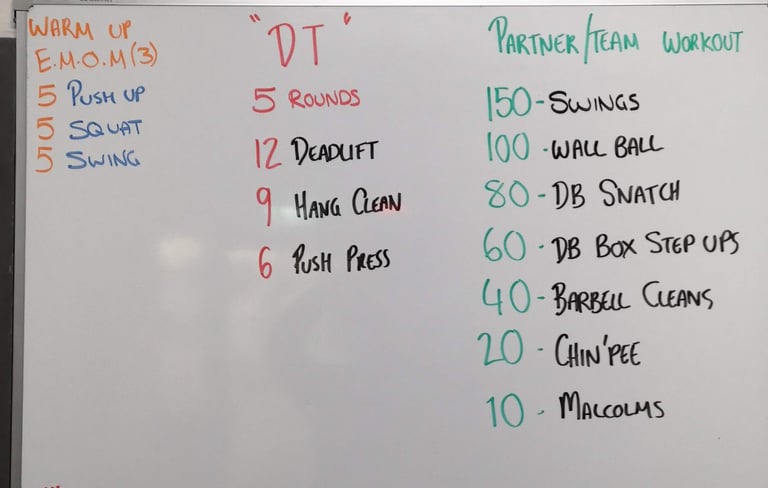 WARM UP
E.M.O.M (3)
5 PUSH UP
5 SQUAT
5 SWING
"DT"
5 ROUNDS
12 DEADLIFT
9 HANG CLEAN
6 PUSH PRESS
PARTNER/TEAM WORKOUT
150 - SWINGS
100 - WALL BALL
80 - DB SNATCH
60 - DB BOX STEP UPS
40 - BARBELL CLEANS
20 - CHIN'PEE
10 - MALCOLMS